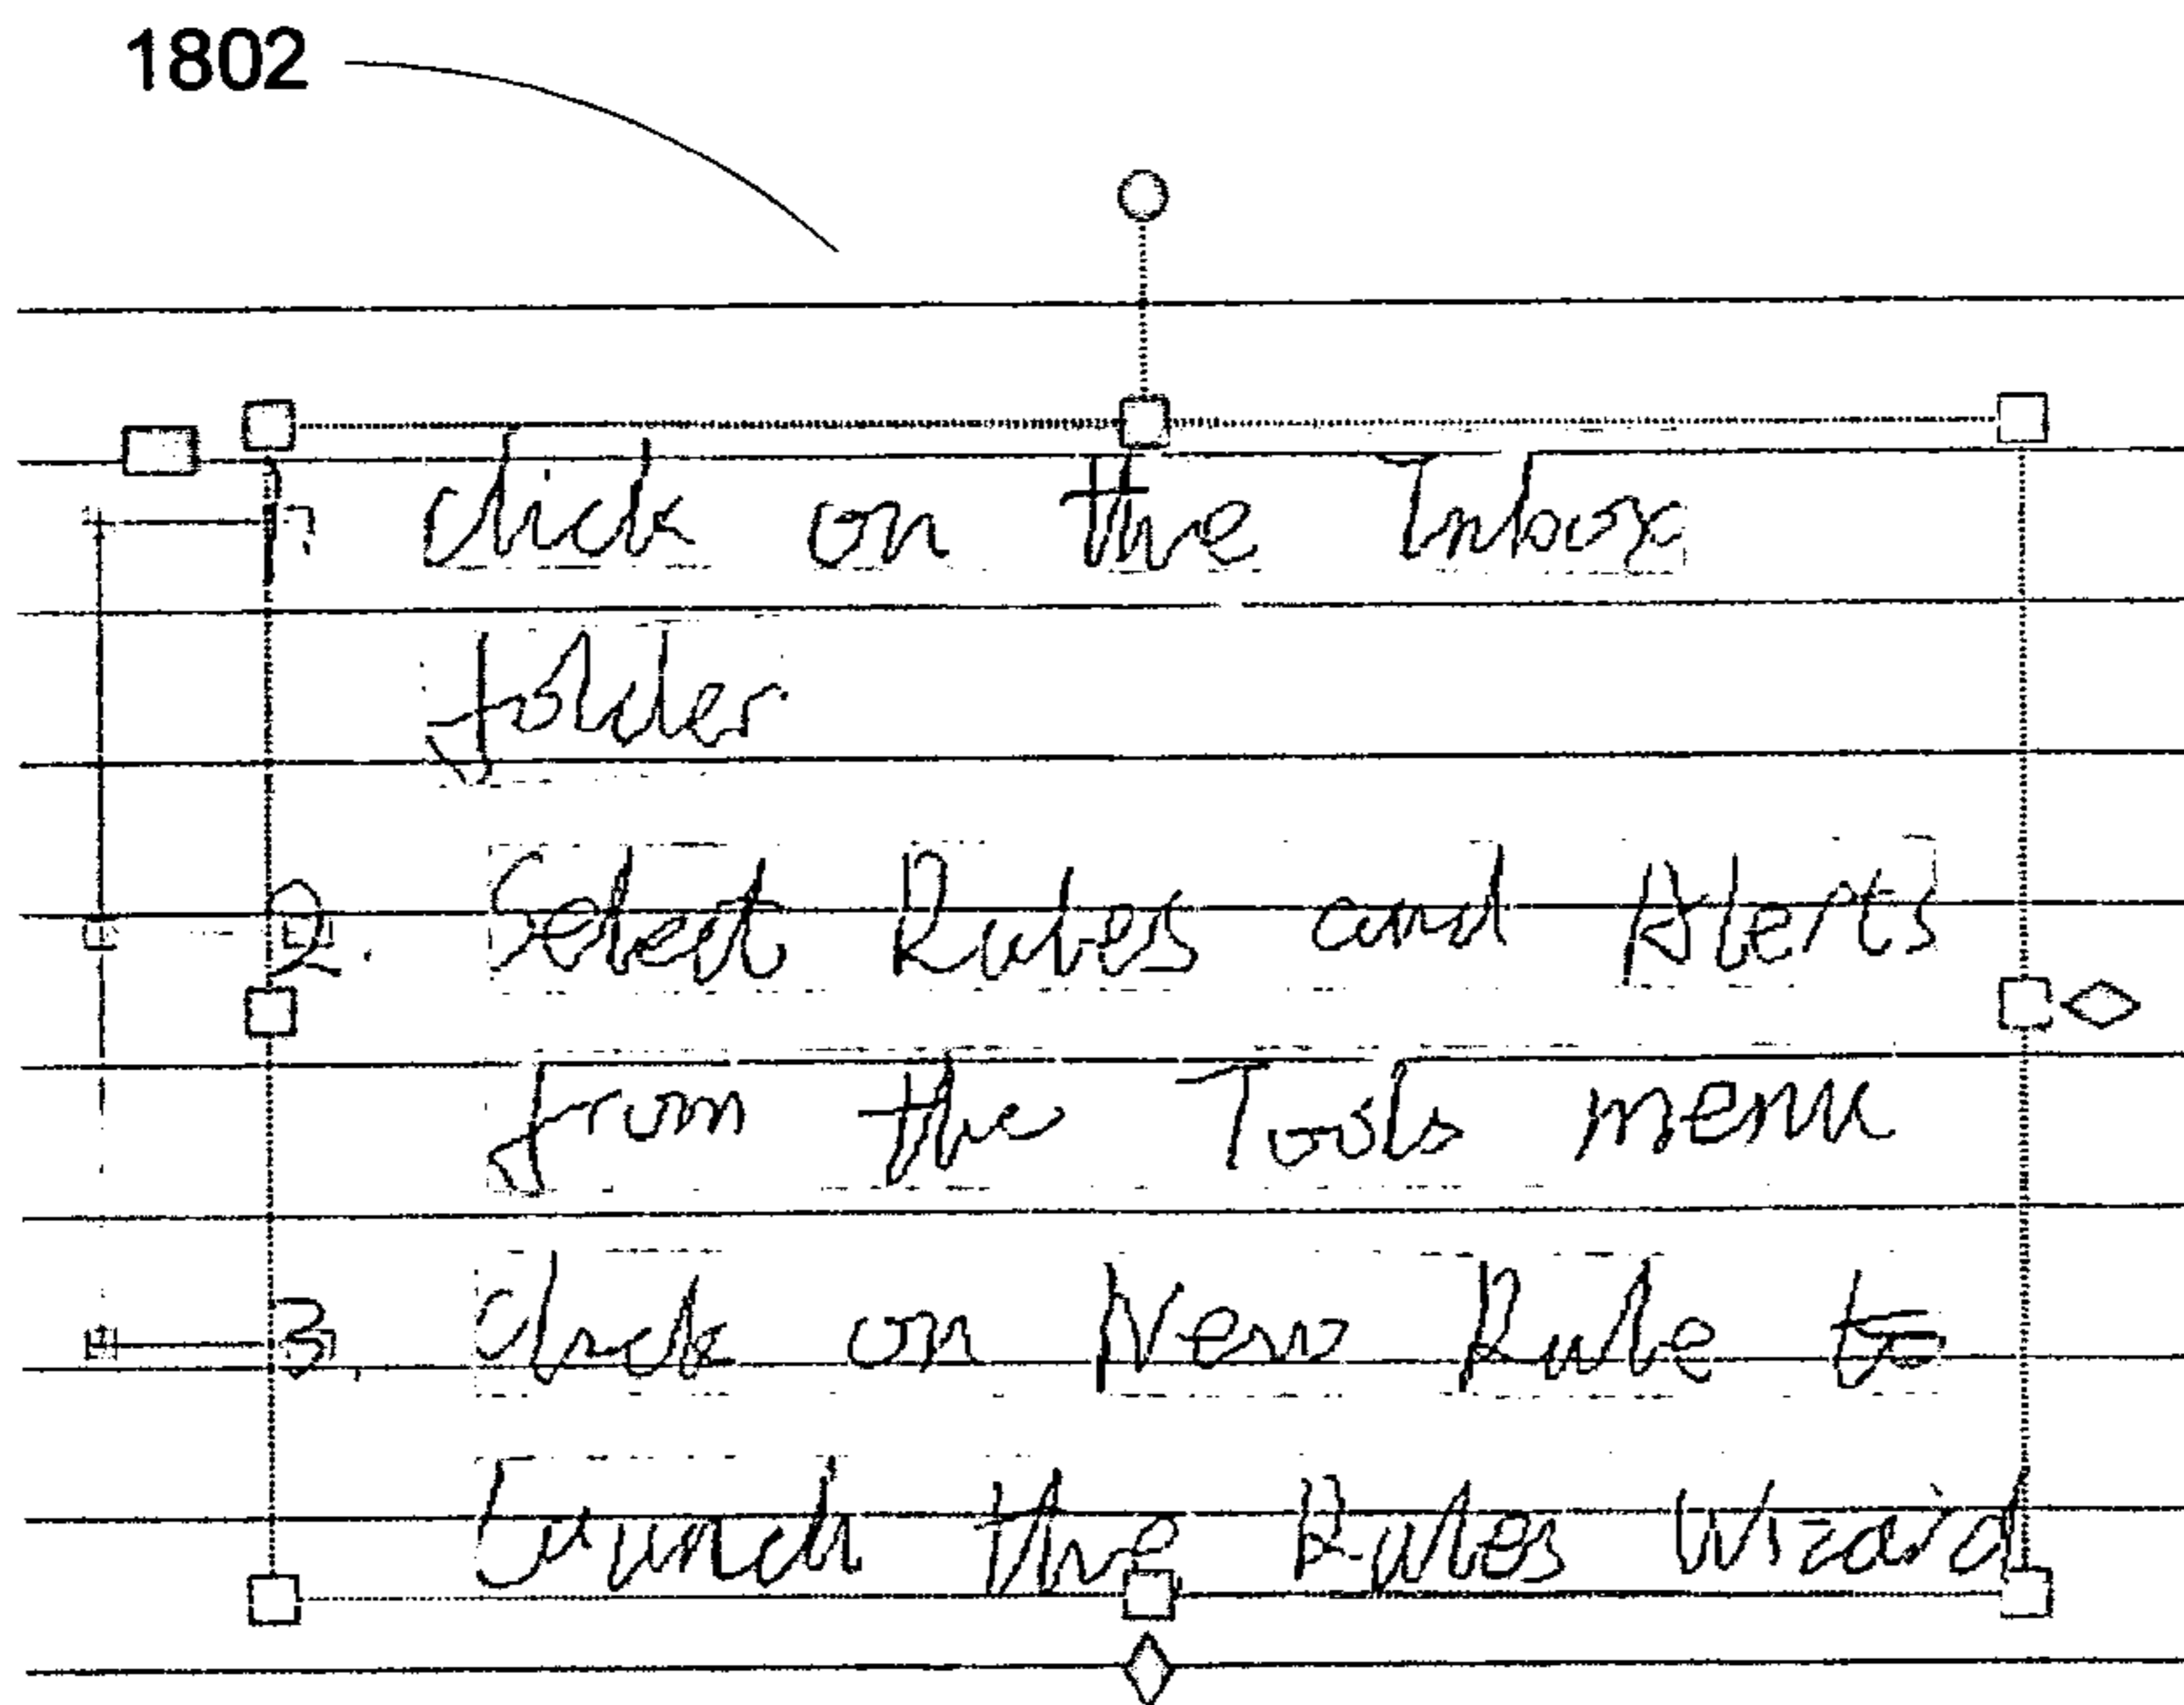 1802
1. click on the Inbox
folder
2. Select Rules and Alerts
from the Tools menu
3. click on New Rule to
launch the Rules Wizard